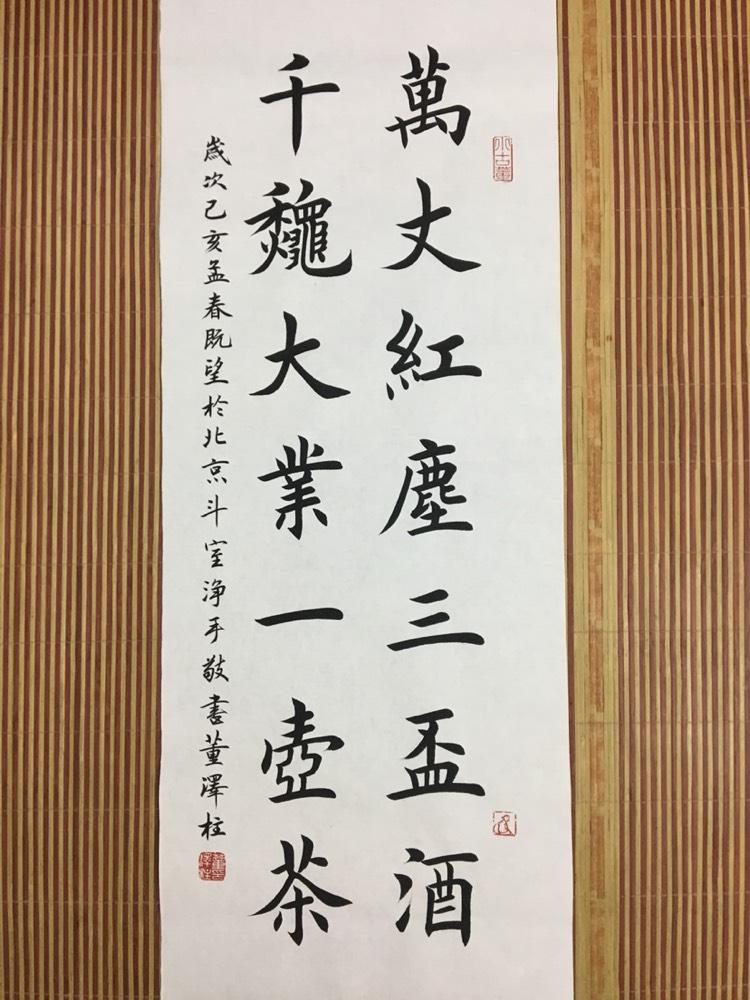 小古董
萬丈紅塵三盃酒
千龝大業一壺茶
歲次己亥孟春既望於北亰斗室淨手敬書董澤柱